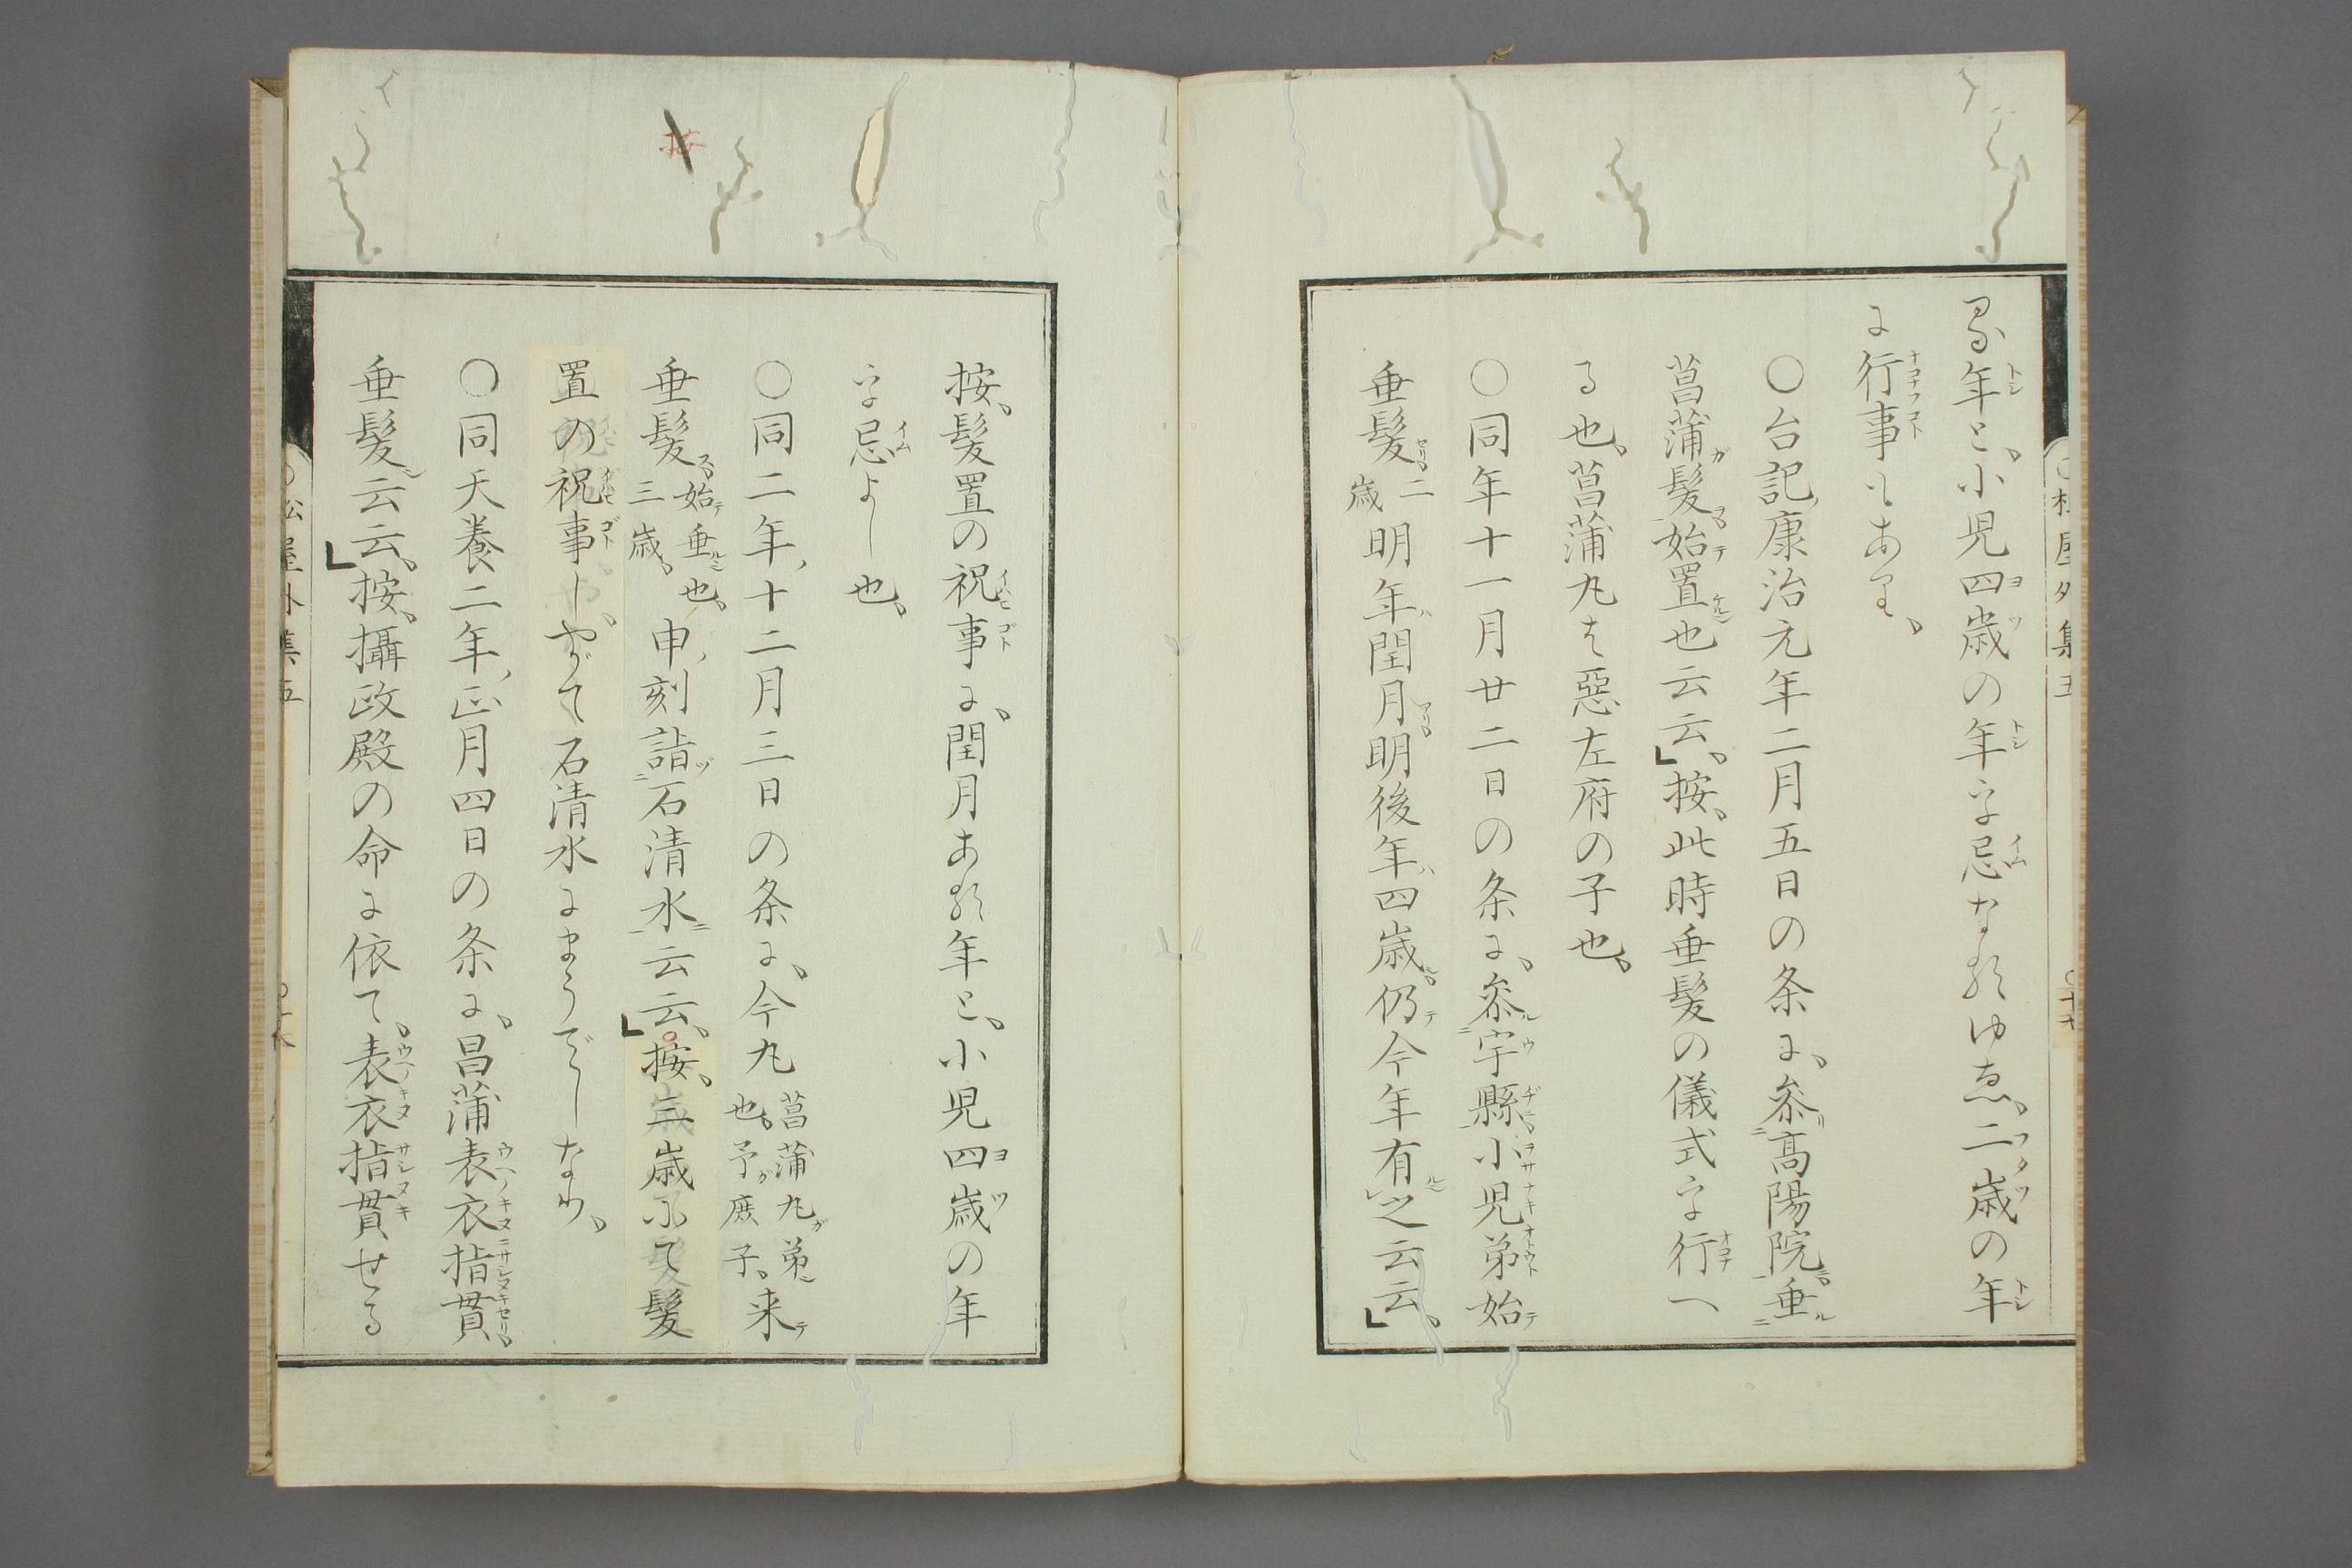 る年と、小児四歳の年を忌なるゆゑ、二歳の年
に行事もあり、
〇台記、康治元年二月五日の条に、参高陽院、垂
菖蒲髪、始置也云云、」按、此時垂髪の儀式を行へ
る也、菖蒲丸は惡左府の子也、
〇同年十一月廿二日の条に、参宇縣、小児弟始
垂髪、二歳明年閏月、明後年四歳、仍今年有之云云、」
按、髪置の祝事に、閏月ある年と、小児四歳の年
を忌よし也、
〇同二年、十二月三日の条に、今丸菖蒲丸弟也、予庶子、来
垂髪、始垂也、三歳、申刻詣石清水云云、」按、三歳にて髪
置の祝事し、やがて石清水にまうでしなり、
〇同天養二年、正月四日の条に、昌蒲表衣指貫、
垂髪云云、」按、攝政殿の命に依て、表衣指貫せる
松屋外集五